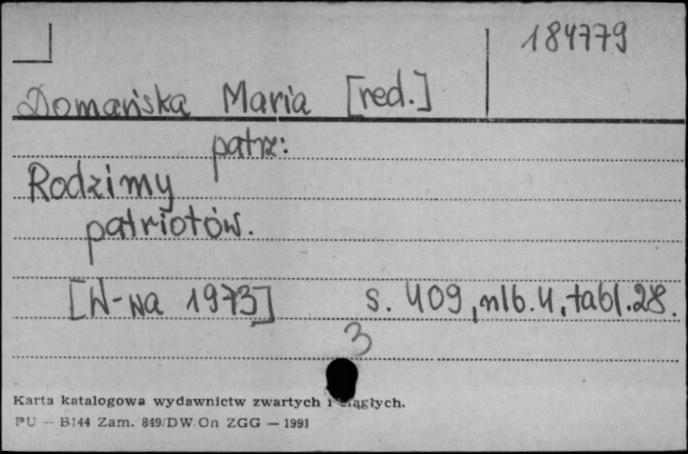 184779
Domańska Maria [red.]
patrz:
Rodzimy
patriotów.
[W-wa 1973] s. 409, nlb. 4, tabl. 28.
3
Karta katalogowa wydawnictw zwartych i ciągłych.
PU — B144 Zam. 849/DW/On ZGG — 1991